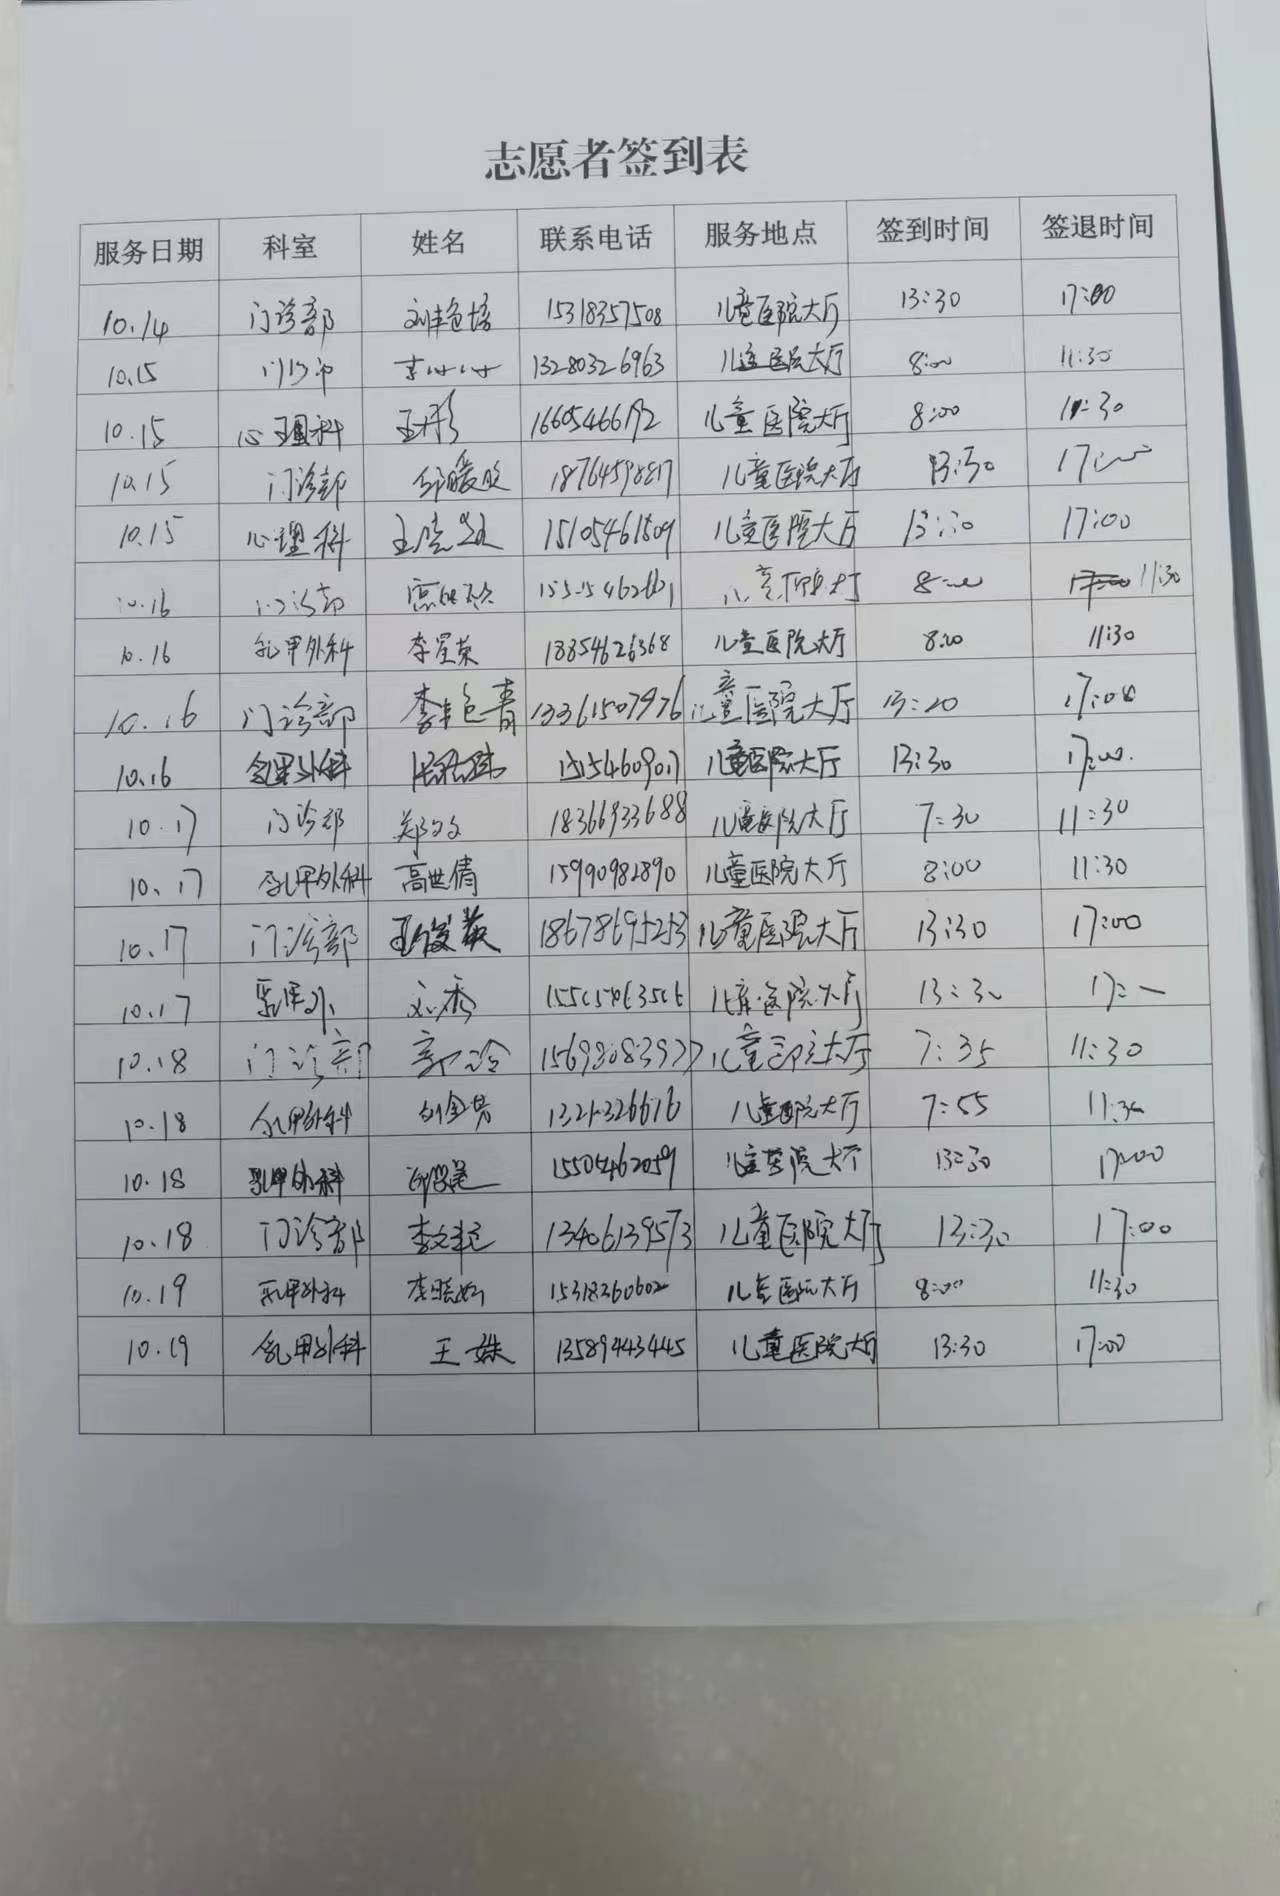 志愿者签到表
服务日期 科室 姓名 联系电话 服务地点 签到时间 签退时间
10.14 门诊部 刘艳培 15318357508 儿童医院大厅 13:30 17:00
10.15 门诊部 13280326963 儿童医院大厅 8:00 11:30
10.15 心理科 王彤 儿童医院大厅 8:00 11:30
10.15 门诊部 儿童医院大厅 13:30 17:00
10.15 心理科 儿童医院大厅 13:30 17:00
10.16 门诊部 8:00 11:30
10.16 乳甲外科 李星荣 18854626368 儿童医院大厅 8:00 11:30
10.16 门诊部 李艳青 13361507976 儿童医院大厅 13:20 17:00
10.16 乳甲外科 15154609017 儿童医院大厅 13:30 17:00
10.17 门诊部 郑文文 18366933688 儿童医院大厅 7:30 11:30
10.17 乳甲外科 高世倩 15990982890 儿童医院大厅 8:00 11:30
10.17 门诊部 18678695253 儿童医院大厅 13:30 17:00
10.17 乳甲外 刘秀 儿童医院大厅 13:30
10.18 门诊部 郭冷 15698083977 儿童医院大厅 7:35 11:30
10.18 乳甲外科 儿童医院大厅 7:55 11:30
10.18 乳甲外科 15505462059 儿童医院大厅 13:30 17:00
10.18 门诊部 13406139573 儿童医院大厅 13:30 17:00
10.19 乳甲外科 15318360602 儿童医院大厅 8:00 11:30
10.19 乳甲外科 王姝 13589443445 儿童医院大厅 13:30 17:00